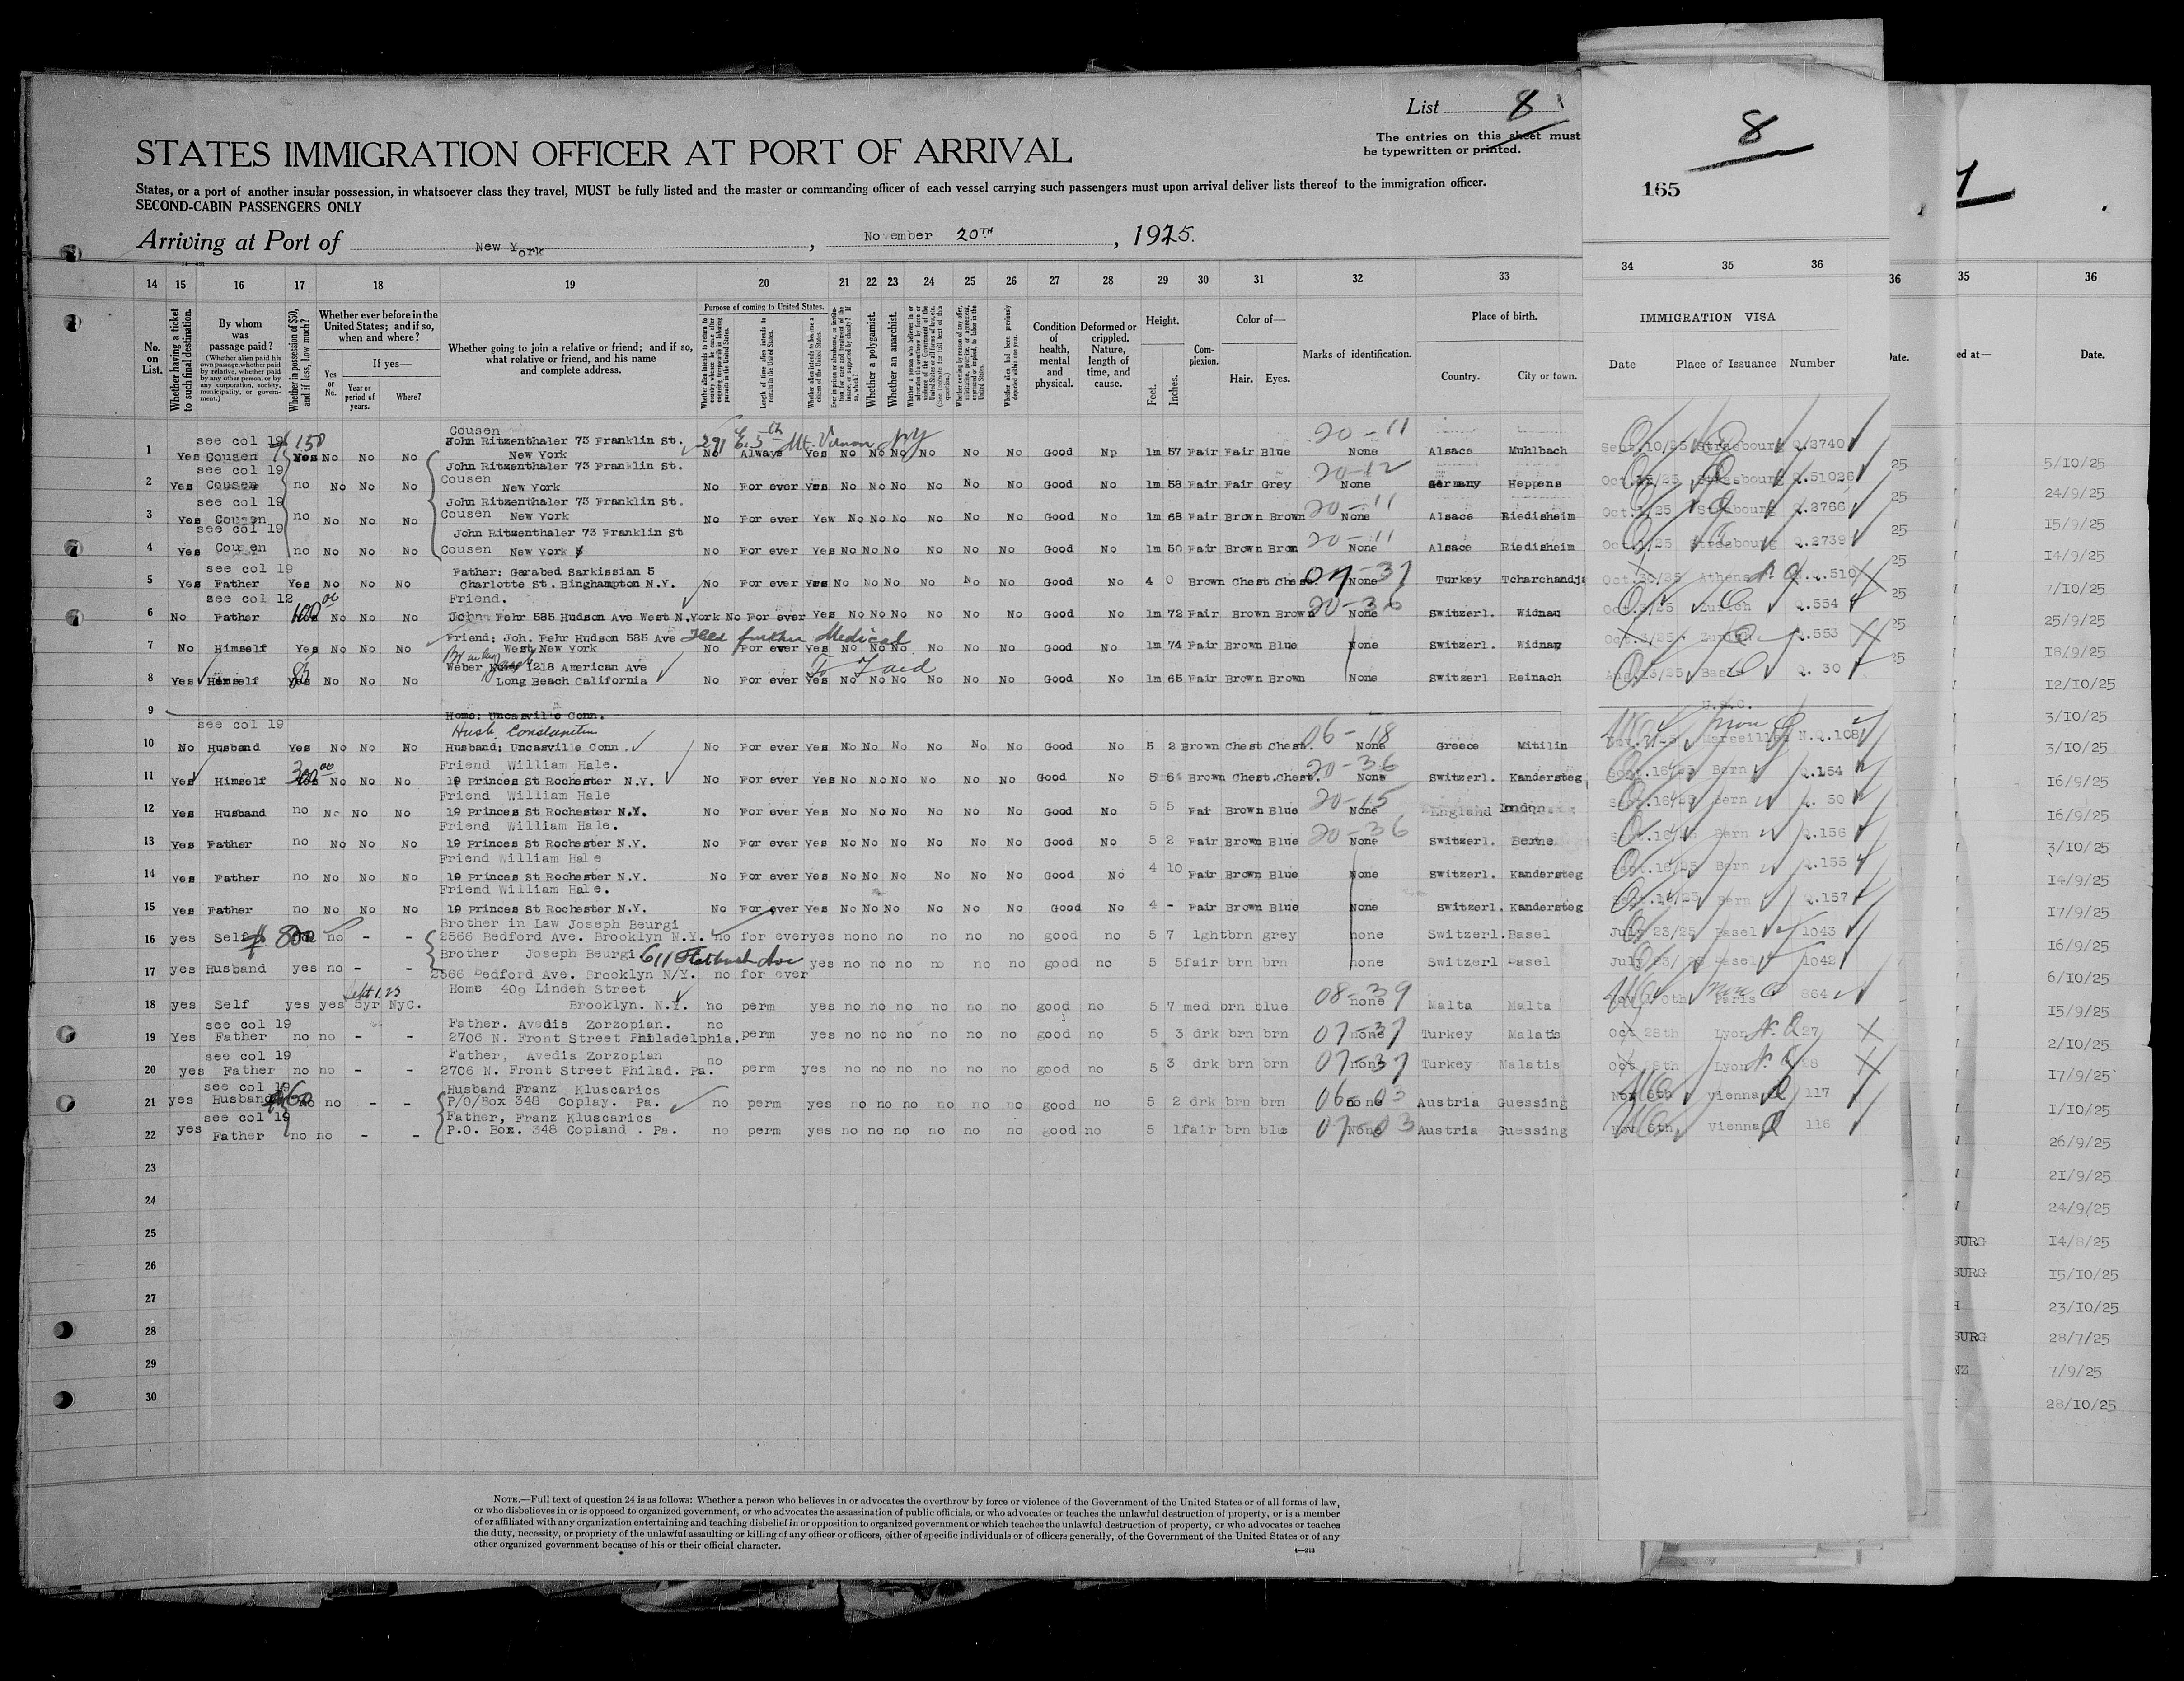 List 8
The entries on this sheet must
be typewritten or printed.
STATES IMMIGRATION OFFICER AT PORT OF ARRIVAL
States, or a port of another insular possession, in whatsoever class they travel, MUST be fully listed and the master or commanding officer of each vessel carrying such passengers must upon arrival deliver lists thereof to the immigration officer.
SECOND-CABIN PASSENGERS ONLY
Arriving at Port of New York, November 20TH, 1925.
8
165
14 15 16 17 18 19 20 21 22 23 24 25 26 27 28 29 30 31 32 33 34 35 36
No. on List.
Whether having a ticket to such final destination.
By whom was passage paid?
(Whether alien paid his own passage, whether paid by relative, whether paid by any other person, or by any corporation, society, municipality, or government.)
Whether in possession of $50, and if less, how much?
Whether ever before in the United States; and if so, when and where?
If yes—
Yes or No.
Year or period of years.
Where?
Whether going to join a relative or friend; and if so, what relative or friend, and his name and complete address.
Purpose of coming to United States.
Length of time alien intends to remain in the United States.
Whether a polygamist.
Whether an anarchist.
Condition of health, mental and physical.
Deformed or crippled. Nature, length of time, and cause.
Height.
Feet.
Inches.
Complexion.
Color of—
Hair. Eyes.
Marks of identification.
Place of birth.
Country. City or town.
IMMIGRATION VISA
Date Place of Issuance Number
Cousen
see col 19 John Ritzenthaler 73 Franklin St. 291 E. 5th Mt. Vernon NY 20-11
1 Yes Cousen 150 Yes No No No New York No Always Yes No No No No No No Good No 1m 57 Fair Fair Blue None Alsace Muhlbach Sept.10/25 Strasbourg Q.2740
see col 19 John Ritzenthaler 73 Franklin St. 20-12
2 Yes Cousen no No No No Cousen New York No For ever Yes No No No No No No Good No 1m 58 Fair Fair Grey None Germany Heppens Strasbourg Q.51026
see col 19 John Ritzenthaler 73 Franklin St. 20-11
3 Yes Cousen no No No No Cousen New York No For ever Yew No No No No No No Good No 1m 68 Fair Brown Brown None Alsace Riedisheim Q.2766
see col 19 John Ritzenthaler 73 Franklin St 20-11
4 Yes Cousen no No No No Cousen New York No For ever Yes No No No No No No Good No 1m 50 Fair Brown Bron None Alsace Riedisheim Strasbourg Q.2739
see col 19 Father: Garabed Sarkissian 5
5 Yes Father Yes No No No Charlotte St. Binghampton N.Y. No For ever Yes No No No No No No Good No 4 0 Brown Chest Chest. 07-37 None Turkey Tcharchandja Oct.20/25 Athens Q.510
see col 12 Friend.
6 No Father 100 00 No No No John Fehr 585 Hudson Ave West N.York No For ever Yes No No No No No No Good No 1m 72 Fair Brown Brown 20-36 None Switzerl. Widnau Zurich Q.554
Friend: Joh. Fehr Hudson 585 Ave Held further Medical
7 No Himself Yes No No No West New York No For ever Yes No No No No No No Good No 1m 74 Fair Brown Blue None Switzerl. Widnay Oct.3/25 Zurich Q.553
Weber 1218 American Ave
8 Yes Himself 83 Yes No No No Long Beach California No For ever Yes No No No No No No Good No 1m 65 Fair Brown Brown None Switzerl Reinach Aug.13/25 Basel Q. 30
9 Home: Uncasville Conn.
see col 19 Husb. Constantin 06-18
10 No Husband Yes No No No Husband: Uncasville Conn. No For ever Yes No No No No No No Good No 5 2 Brown Chest Chest. None Greece Mitilin Marseilles N.Q.108
Friend William Hale. 20-36
11 Yes Himself 300 00 No No No 19 Princes St Rochester N.Y. No For ever Yes No No No No No No Good No 5 6 Brown Chest.Chest. None Switzerl. Kandersteg Sept.16/25 Bern Q.154
Friend William Hale 20-15
12 Yes Husband no No No No 19 Princes St Rochester N.Y. No For ever Yes No No No No No No Good No 5 5 Fair Brown Blue None England London Sept.16/25 Bern Q. 50
Friend William Hale. 20-36
13 Yes Father no No No No 19 Princes St Rochester N.Y. No For ever Yes No No No No No No Good No 5 2 Fair Brown Blue None Switzerl. Berne Bern Q.156
Friend William Hale
14 Yes Father no No No No 19 Princes St Rochester N.Y. No For ever Yes No No No No No No Good No 4 10 Fair Brown Blue None Switzerl. Kandersteg Sept.16/25 Bern Q.155
Friend William Hale.
15 Yes Father no No No No 19 Princes St Rochester N.Y. No For ever Yes No No No No No No Good No 4 - Fair Brown Blue None Switzerl. Kandersteg Sept.16/25 Bern Q.157
Brother in Law Joseph Beurgi
16 yes Self $ 800 no - - 2566 Bedford Ave. Brooklyn N.Y. no for ever yes no no no no no no good no 5 7 lght brn grey none Switzerl. Basel July 23/25 Basel 1043
Brother Joseph Beurgi 611 Flatbush Ave
17 yes Husband yes no - - 2566 Bedford Ave. Brooklyn N/Y. no for ever yes no no no no no no good no 5 5 fair brn brn none Switzerl Basel July 23/25 Basel 1042
Sept 1.23 Home 409 Linden Street 08-39
18 yes Self yes yes 5yr NyC. Brooklyn. N.Y. no perm yes no no no no no no good no 5 7 med brn blue none Malta Malta Nov 10th Paris 864
see col 19 Father. Avedis Zorzopian. no
19 Yes Father no no - - 2706 N. Front Street Philadelphia. perm yes no no no no no no good no 5 3 drk brn brn 07-37 none Turkey Malatis Oct 28th Lyon N.Q. 27
see col 19 Father, Avedis Zorzopian no
20 yes Father no no - - 2706 N. Front Street Philad. Pa. perm yes no no no no no no good no 5 3 drk brn brn 07-37 none Turkey Malatis Lyon N.Q. 28
see col 19 Husband Franz Kluscarics
21 yes Husband $60 no no - - P/O/Box 348 Coplay. Pa. no perm yes no no no no no no good no 5 2 drk brn brn 06-03 none Austria Guessing Nov 6th Vienna 117
see col 19 Father, Franz Kluscarics
22 yes Father no no - - P.O. Box. 348 Copland . Pa. no perm yes no no no no no no good no 5 1 fair brn blue 07-03 None Austria Guessing Nov 6th Vienna 116
23
24
25
26
27
28
29
30
NOTE.—Full text of question 24 is as follows: Whether a person who believes in or advocates the overthrow by force or violence of the Government of the United States or of all forms of law,
or who disbelieves in or is opposed to organized government, or who advocates the assassination of public officials, or who advocates or teaches the unlawful destruction of property, or is a member
of or affiliated with any organization entertaining and teaching disbelief in or opposition to organized government or which teaches the unlawful destruction of property, or who advocates or teaches
the duty, necessity, or propriety of the unlawful assaulting or killing of any officer or officers, either of specific individuals or of officers generally, of the Government of the United States or of any
other organized government because of his or their official character.
36 35 36
Date. ed at— Date.
5/10/25
24/9/25
15/9/25
14/9/25
7/10/25
25/9/25
18/9/25
12/10/25
3/10/25
3/10/25
16/9/25
16/9/25
3/10/25
14/9/25
17/9/25
16/9/25
6/10/25
15/9/25
2/10/25
17/9/25
1/10/25
26/9/25
21/9/25
24/9/25
BURG 14/8/25
BURG 15/10/25
23/10/25
BURG 28/7/25
NZ 7/9/25
28/10/25